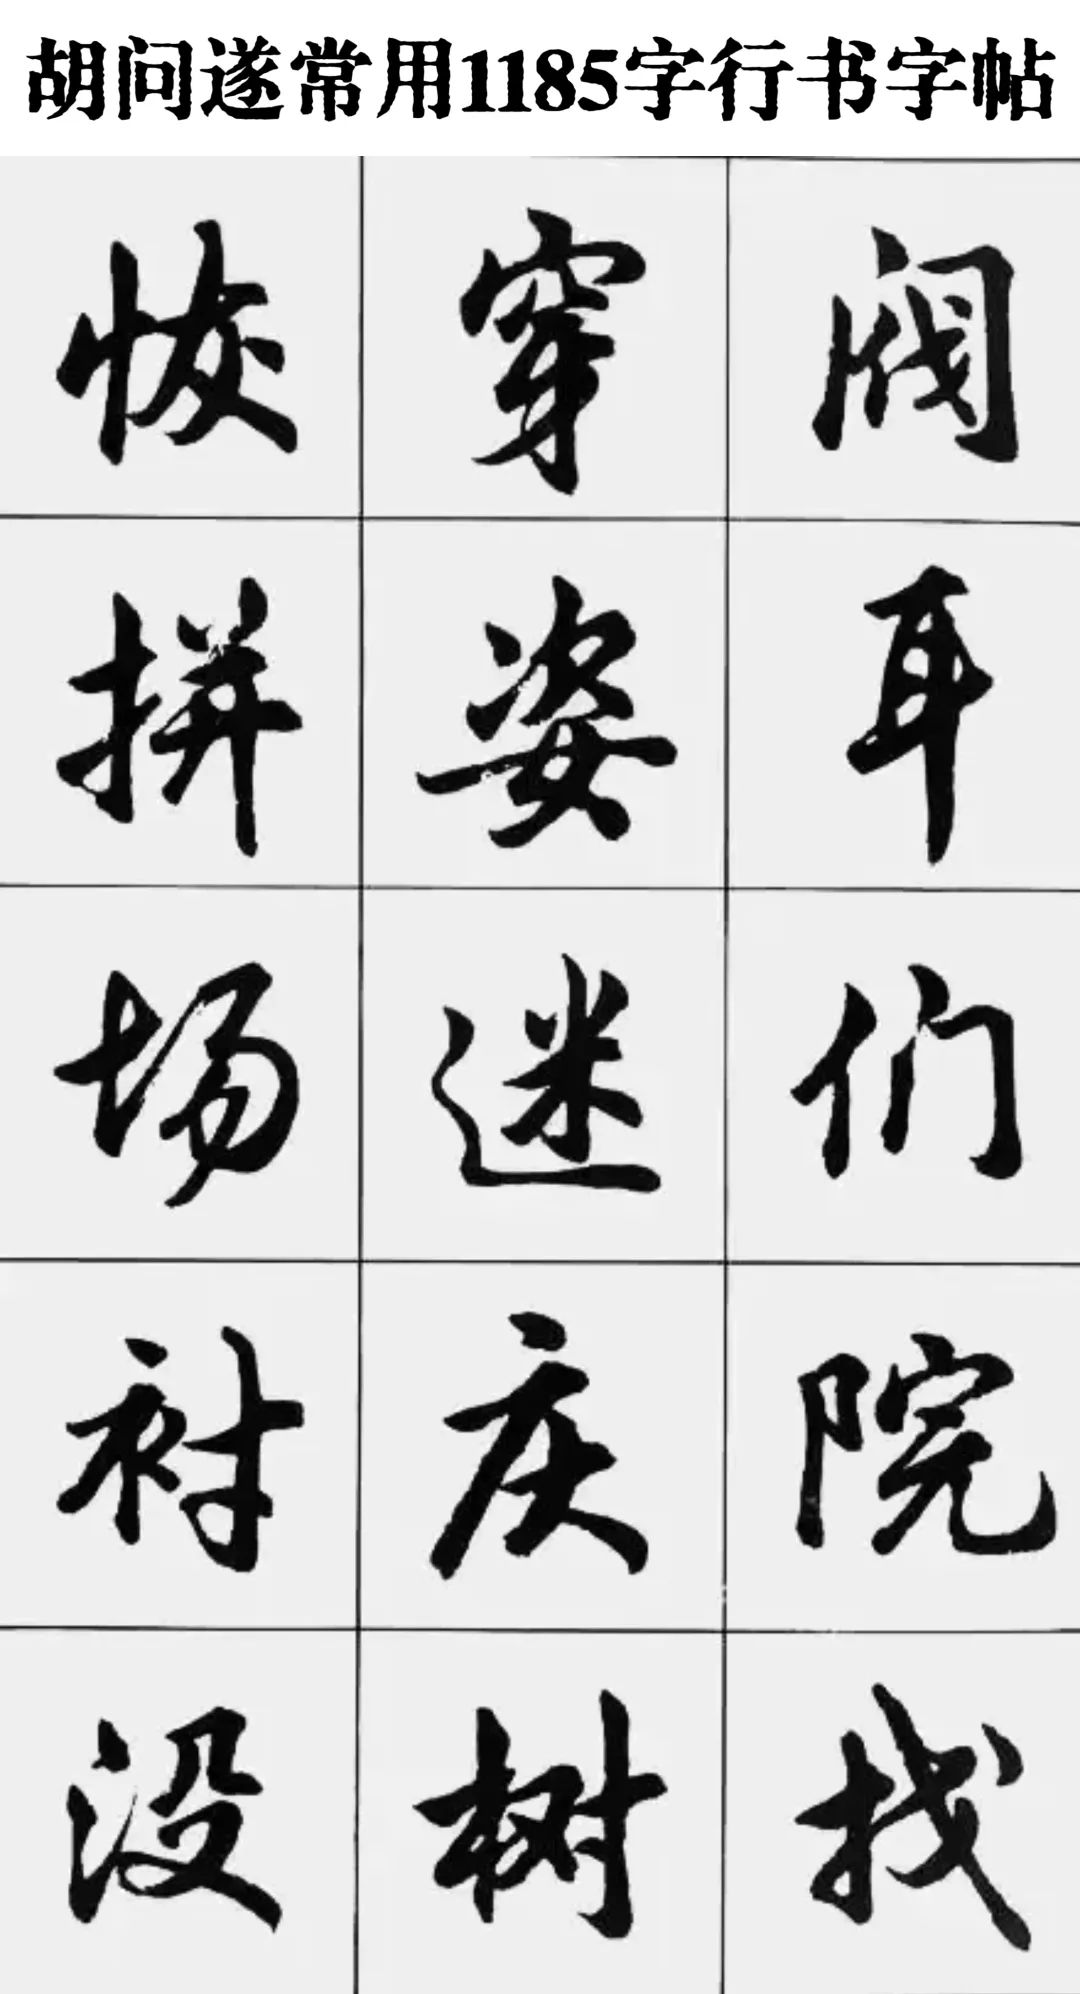 胡问遂常用1185字行书字帖
恢 穿 阀
拼 姿 耳
场 迷 们
衬 庆 院
没 树 找